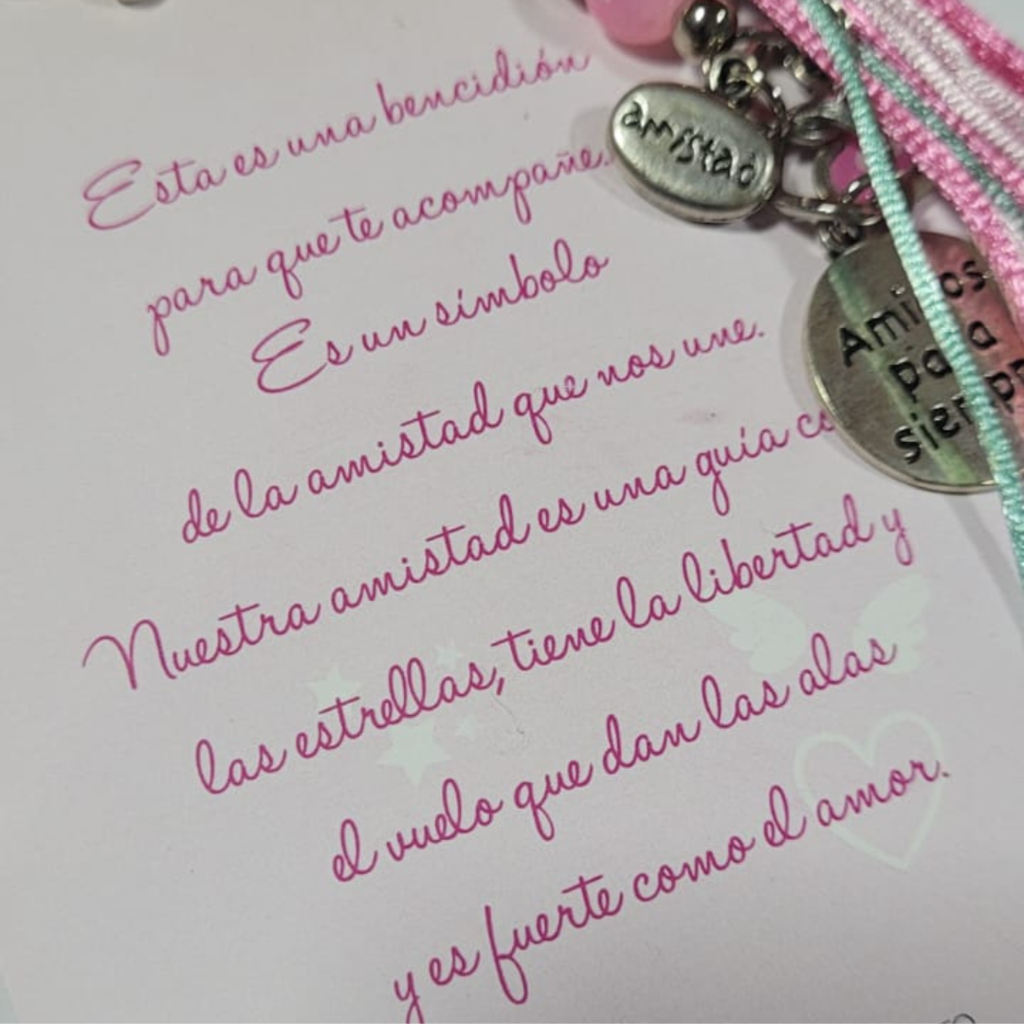 Esta es una bencidión
para que te acompañe.
Es un símbolo
de la amistad que nos une.
Nuestra amistad es una guía
las estrellas, tiene la libertad y
el vuelo que dan las alas
y es fuerte como el amor.
amistad
Amigos
para